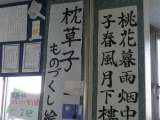 桃花暮雨烟中
子春風月下樓
枕草子
ものづくし絵